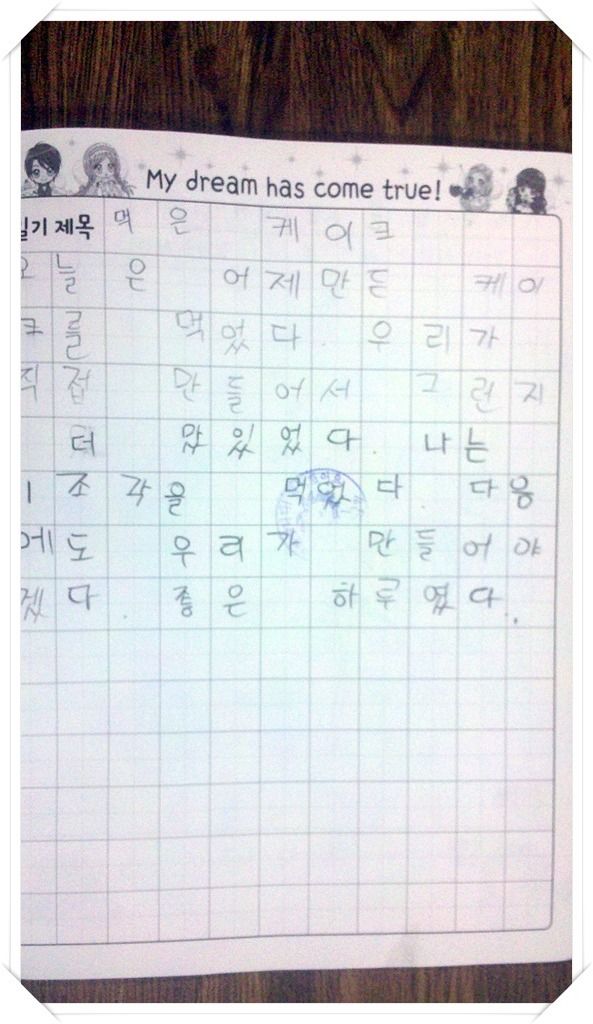 My dream has come true!
일기 제목 먹은 케이크
오늘은 어제 만든 케이
크를 먹었다. 우리가
직접 만들어서 그런지
더 맜있었다. 나는
1조각을 먹었다 다응
에도 우리가 만들어야
겠다. 좋은 하루였다.